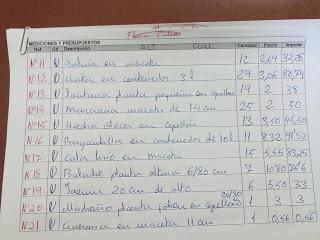 MEDICIONES Y PRESUPUESTOS
Ref. Ud. Descripción Cantidad Precio Importe
Nº11 U Salvia en maceta 12 2,64
Nº12 U en contenedor 3 l 29 3,06 88,74
Nº13 U Santolina planta pequeña en cepellon 19 2 38
Nº14 U Murciana maceta de 14 cm 25 2 50
Nº15 U Hiedra en cepellón 13 3,50
Nº16 U Buganvillas en contenedor de 10 l 11 8,32 91,52
Nº17 U Cala lirio en maceta 15 5,55 83,25
Nº18 U Baladre planta altura 6/80 cm 7 10,80 75,6
Nº19 U Jazmín 20 cm de alto 6 5,50 33
Nº20 U Madroño planta joven en cepellón 20/30 1 3 3
Nº21 U en maceta 11 cm 1 0,56 0,56